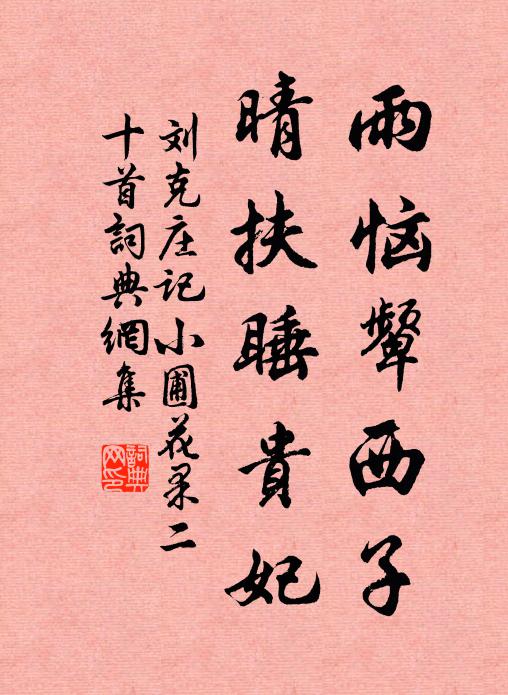 雨恼颦西子
晴扶睡貴妃
刘克庄记小圃花果二
十首詞典網集
詞典網印